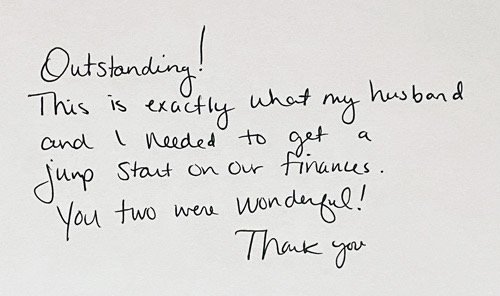 Outstanding!
This is exactly what my husband
and I needed to get a
jump start on our finances.
You two were wonderful!
Thank you